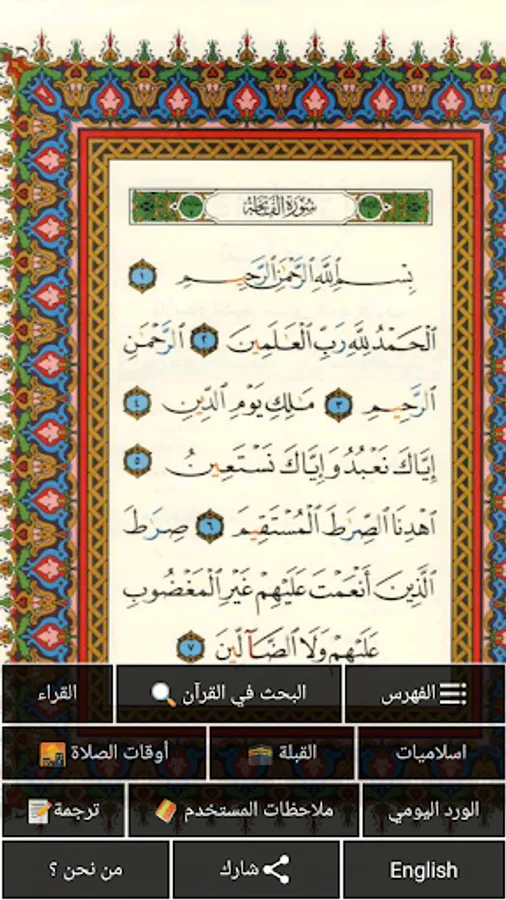 سُورَةُ الْفَاتِحَةِ
بِسْمِ ٱللَّهِ ٱلرَّحْمَٰنِ ٱلرَّحِيمِ ١
ٱلْحَمْدُ لِلَّهِ رَبِّ ٱلْعَٰلَمِينَ ٢ ٱلرَّحْمَٰنِ
ٱلرَّحِيمِ ٣ مَٰلِكِ يَوْمِ ٱلدِّينِ ٤
إِيَّاكَ نَعْبُدُ وَإِيَّاكَ نَسْتَعِينُ ٥
ٱهْدِنَا ٱلصِّرَٰطَ ٱلْمُسْتَقِيمَ ٦ صِرَٰطَ
ٱلَّذِينَ أَنْعَمْتَ عَلَيْهِمْ غَيْرِ ٱلْمَغْضُوبِ
عَلَيْهِمْ وَلَا ٱلضَّآلِّينَ ٧
الفهرس البحث في القرآن القراء
اسلاميات القبلة أوقات الصلاة
الورد اليومي ملاحظات المستخدم ترجمة
English شارك من نحن ؟